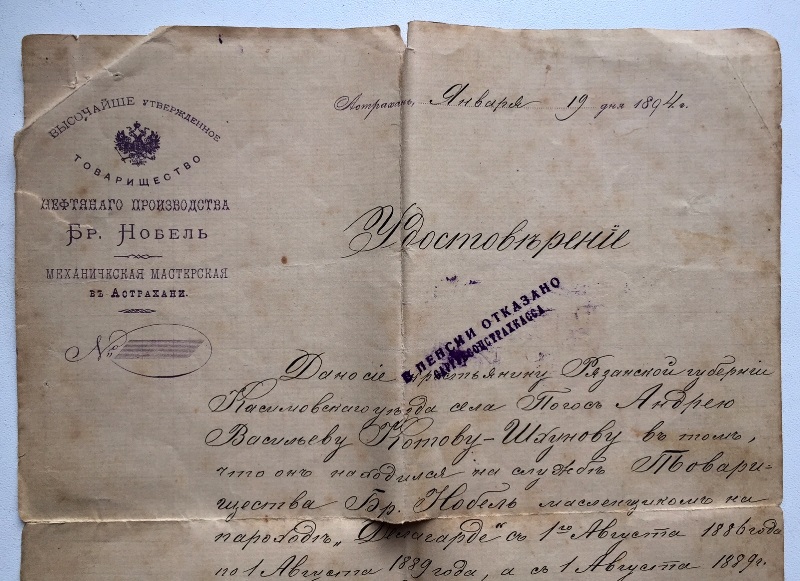 Астрахань, Января 19 дня 1894 г.
ВЫСОЧАЙШЕ УТВЕРЖДЕННОЕ
ТОВАРИЩЕСТВО
НЕФТЯНАГО ПРОИЗВОДСТВА
БР. НОБЕЛЬ
МЕХАНИЧЕСКАЯ МАСТЕРСКАЯ
ВЪ АСТРАХАНИ.
№
Удостовѣреніе
В ПЕНСИИ ОТКАЗАНО
Дано сіе крестьянину Рязанской губерніи
Касимовскаго уѣзда села Погосъ Андрею
Васильеву Котову-Шхунову въ томъ,
что онъ находился на службѣ Товари-
щества Бр. Нобель масленщикомъ на
пароходѣ „Благарде" съ 1го Августа 1886 года
по 1 Августа 1889 года, а съ 1 Августа 1889 г.